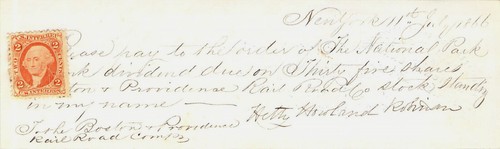 New York 11th July 1866
Please pay to the order of The National Park
Bank dividend due on Thirty five shares
Boston & Providence Rail Road Co stock Standing
in my name —
Hetty Howland Robinson
To the Boston & Providence
Rail Road Comp
2 2
2 2